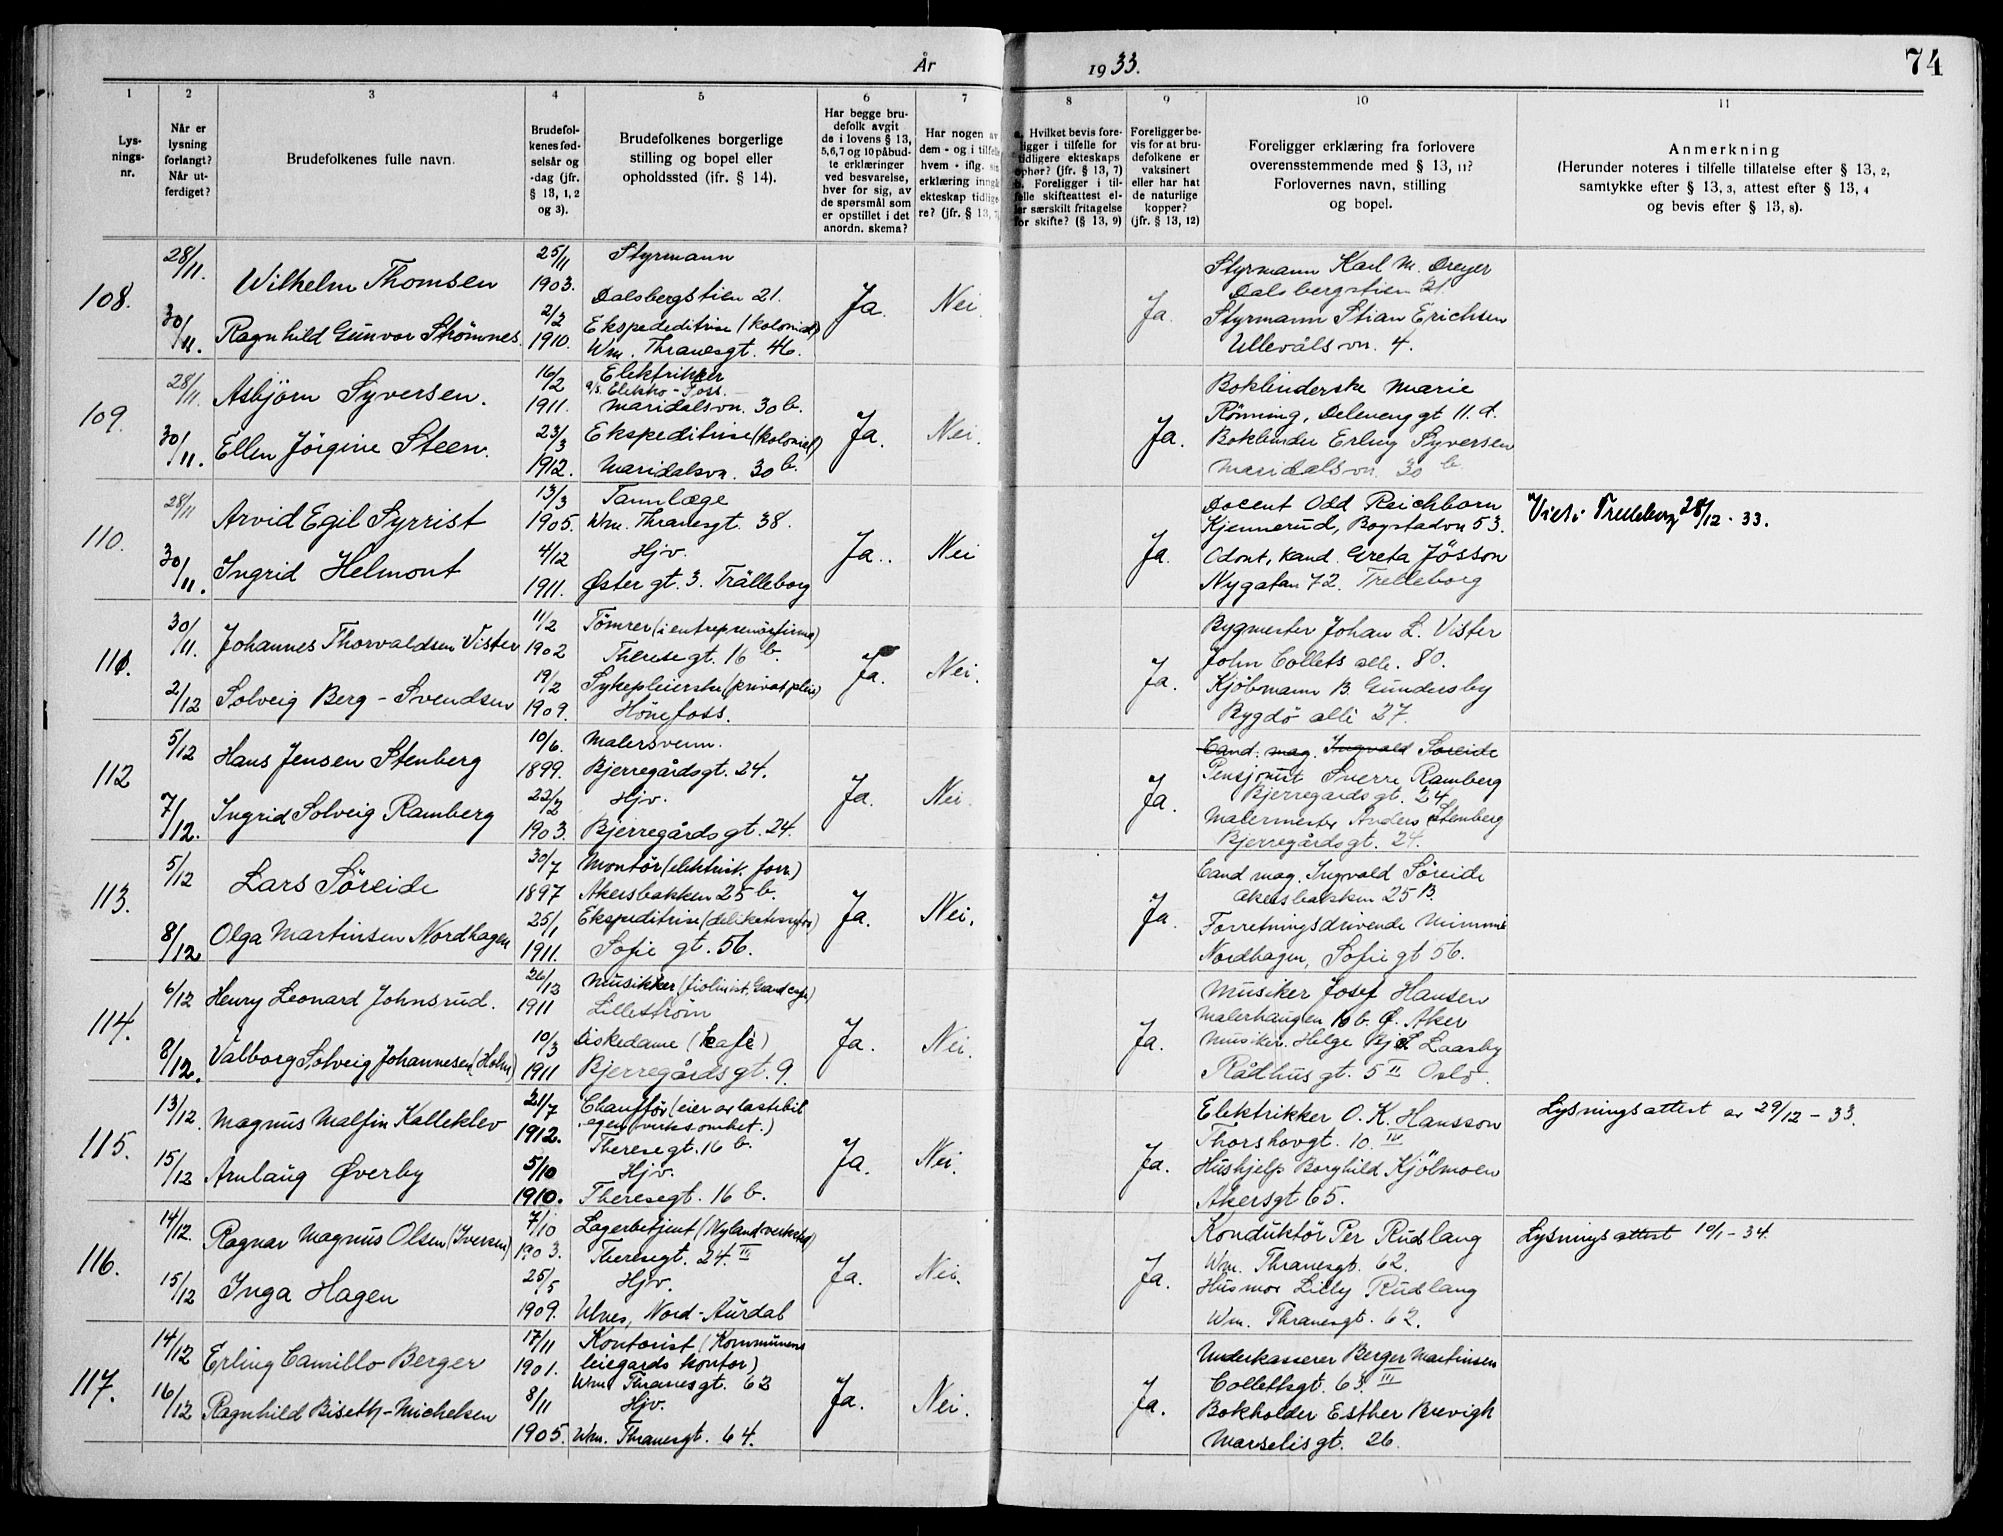 År 1933.
74
1 2 3 4 5 6 7 8 9 10 11
Lys-
nings-
nr.
Når er
lysning
forlangt?
Når ut-
ferdiget?
Brudefolkenes fulle navn.
Brudefol-
kenes fød-
selsår og
-dag (jfr.
§ 13, 1, 2
og 3).
Brudefolkenes borgerlige
stilling og bopel eller
opholdssted (ifr. § 14).
Har begge bru-
defolk avgit
de i lovens § 13,
5,6,7 og 10 påbud-
te erklæringer
ved besvarelse,
hver for sig, av
de spørsmål som
er opstillet i det
anordn. skema?
Har nogen av
dem - og i tilfelle
hvem - iflg. sin
erklæring inngå
ekteskap tidlige
re? (jfr. § 13, 7
a. Hvilket bevis fore-
ligger i tilfelle for
tidligere ekteskaps
ophør? (jfr. § 13, 7)
b. Foreligger i til-
felle skifteattest el-
ler særskilt fritagelse
for skifte? (§ 13, 9)
Foreligger be-
vis for at bru-
defolkene er
vaksinert
eller har hat
de naturlige
kopper?
(jfr. § 13, 12)
Foreligger erklæring fra forlovere
overensstemmende med § 13, 11?
Forlovernes navn, stilling
og bopel.
Anmerkning
(Herunder noteres i tilfelle tillatelse efter § 13, 2,
samtykke efter § 13, 3, attest efter § 13, 4
og bevis efter § 13, 8).
108.
28/11.
30/11.
Wilhelm Thomsen
Ragnhild Gunvor Strømnes.
25/11
1903.
2/2
1910.
Styrmann
Dalsbergstien 21.
Ekspededitrise (kolonial)
Wm. Thranesgt. 46.
Ja. Nei. Ja.
Styrmann Karl M. Dreyer
Dalsbergstien 21.
Styrmann Stian Erichsen
Ullevålsvn. 4.
109.
28/11.
30/11.
Asbjørn Syversen.
Ellen Jörgine Steen.
16/2
1911.
23/3
1912.
Elektrikker
a/s. Elektro-Foss.
Maridalsvn. 30 b.
Ekspeditrise (kolonial)
Maridalsvn. 30 b.
Ja. Nei. Ja.
Bokbinderske Marie
Rönning, Delenenggt 11. d.
Bokbinder Erling Syversen
Maridalsvn. 30 b.
110.
28/11
30/11.
Arvid Egil Syrrist
Ingrid Helmont
13/3
1905.
4/12
1911.
Tannlæge
Wm. Thranesgt. 38.
Hjv.
Øster gt. 3. Trälleborg
Ja.. Nei Ja.
Docent Odd Reichborn
Kjennerud, Bogstadvn 53.
Odont. kand. Greta Jösson
Nygatan 72. Trelleborg
Viet i Trelleborg 28/12 - 33.
111.
30/11.
2/12
Johannes Thorvaldsen Vister
Solveig Berg - Svendsen
11/2
1902
19/2
1909.
Tömrer (i entreprenörfirma)
Therese gt. 16 b.
Sykepleierske (privat pleie)
Hönefoss.
Ja. Nei. Ja.
Bygmester Johan L. Vister
John Collets alle. 80.
Kjöbmann B. Gundersby
Bygdö alle 27.
112
5/12
7/12.
Hans Jensen Stenberg
Ingrid Solveig Ramberg
10/6.
1899.
22/2
1903.
Malersvenn.
Bjerregårdsgt. 24.
Hjv.
Bjerregårds gt. 24.
Ja. Nei. Ja.
Cand. mag. Ingvald Söreide
Pensjonist Sverre Ramberg
Bjerregards gt. 24
Malermester Anders Stenberg
Bjerregårdsgt. 24.
113.
5/12
8/12
Lars Söreide
Olga Martinsen Nordhagen
30/7
1897
25/1
1911.
Montör (elektrisk. forr.)
Akersbakken 25 b.
Ekspeditrise (delikatessefor)
Sofie gt. 56.
Ja. Nei. Ja
Cand mag. Ingvald Söreide
Akersbakken 25 B.
Forretningsdrivende Mimmi
Nordhagen, Sofie gt 56.
114.
6/12
8/12.
Henry Leonard Johnsrud.
Valborg Solveig Johannesen (Holm)
26/12
1911
10/3
1911
Musikker (fiolinist, Grand café)
Lilleström
Diskedame (kafé)
Bjerregårdsgt. 9.
Ja. Nei. Ja.
Musiker Josef Hansen
Malerhaugen 16 b. Ø. Aker
Musiker. Helge Laasby
Rådhusgt. 5 II Oslo.
115.
13/12.
15/12
Magnus Malfin Kalleklev
Arnlaug Øverby
21/7
1912.
5/10
1910.
Chauffør (eier av lastebil
egen virksomhet.)
Theresegt. 16 b.
Hjv.
Theresegt. 16 b.
Ja. Nei. Ja.
Elektrikker O. K. Hansson
Thorshovgt. 10. IV
Hushjelp Borghild Kjölmoen
Akersgt 65.
Lysningsattest av 29/12 - 33.
116.
14/12.
15/12
Ragnar Magnus Olsen (Iversen)
Inga Hagen
7/10
1903.
25/5
1909.
Lagerbetjent (Nylandsverksted)
Theresegt. 24. III
Hjv.
Ulnes, Nord-Aurdal
Ja. Nei. Ja.
Konduktör Per Rudlang
Wm. Thranesgt. 62.
Husmor Lilly Rudlang
Wm. Thranesgt. 62.
Lysningsattest 10/1 - 34.
117.
14/12
16/12
Erling Camillo Berger
Ragnhild Biseth-Michelsen
17/11
1901.
8/11
1905.
Kontorist (Kommunens
leiegårds kontor)
Wm. Thranesgt. 62
Hjv.
Wm. Thranesgt. 64.
Ja. Nei. Ja.
Underkasserer Berger Martinsen
Collettsgt. 63. III
Bokholder Esther Brevigh
Marselisgt. 26.